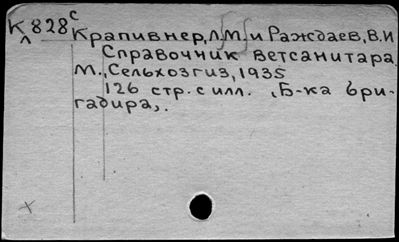 К828с Крапивнер, Л.М. и Раждаев, В.И
Справочник ветсанитара
М., Сельхозгиз, 1935
126 стр. с илл. (Б-ка бри-
гадира).